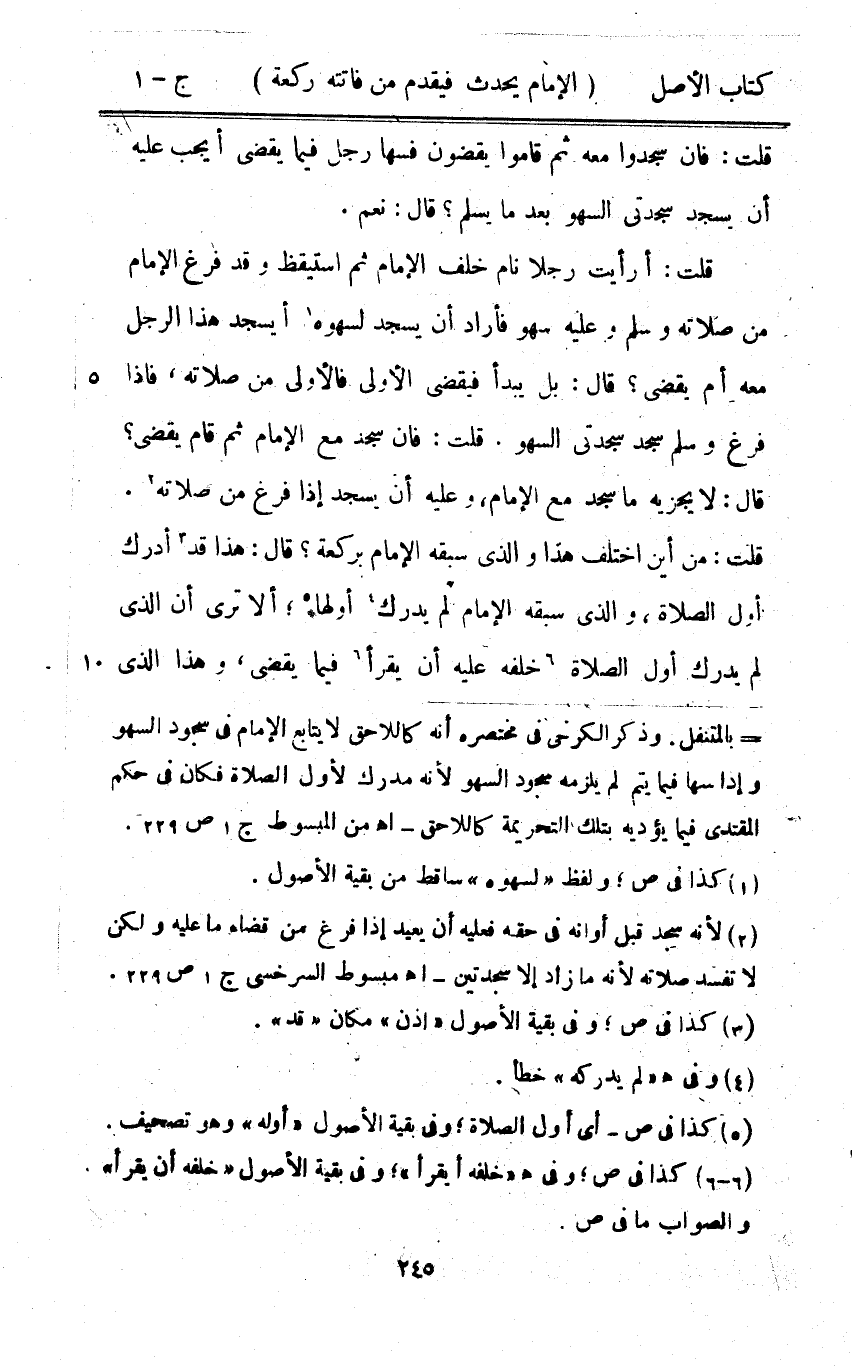 كتاب الأصل ( الإمام يحدث فيقدم من فاتته ركعة ) ج - ١
قلت : فان سجدوا معه ثم قاموا يقضون فسها رجل فيما يقضى أ يجب عليه
أن يسجد سجدتى السهو بعد ما يسلم ؟ قال : نعم .
قلت : أ رأيت رجلا نام خلف الإمام ثم استيقظ و قد فرغ الإمام
من صلاته و سلم و عليه سهو فأراد أن يسجد لسهوه ١ أ يسجد هذا الرجل
معه أم يقضى ؟ قال : بل يبدأ فيقضى الأولى فالأولى من صلاته ، فاذا ٥
فرغ و سلم سجد سجدتى السهو . قلت : فان سجد مع الإمام ثم قام يقضى ؟
قال : لا يجزيه ما سجد مع الإمام ، و عليه أن يسجد إذا فرغ من صلاته ٢ .
قلت : من أين اختلف هذا و الذى سبقه الإمام بركعة ؟ قال : هذا قد ٣ أدرك
أول الصلاة ، و الذى سبقه الإمام لم يدرك ٤ أولها ٥ ؛ ألا ترى أن الذى
لم يدرك أول الصلاة ٦ خلفه عليه أن يقرأ ٦ فيما يقضى ، و هذا الذى ١٠
= بالمتنفل . وذكر الكرخى فى مختصره أنه كاللاحق لا يتابع الإمام فى سجود السهو
و إذا سها فيما يتم لم يلزمه سجود السهو لأنه مدرك لأول الصلاة فكان فى حكم
المقتدى فيما يؤديه بتلك التحريمة كاللاحق - اه من المبسوط ج ١ ص ٢٢٩ .
(١) كذا فى ص ؛ و لفظ « لسهوه » ساقط من بقية الأصول .
(٢) لأنه سجد قبل أوانه فى حقه فعليه أن يعيد إذا فرغ من قضاء ما عليه و لكن
لا تفسد صلاته لأنه ما زاد إلا سجدتين - اه مبسوط السرخسى ج ١ ص ٢٢٩ .
(٣) كذا فى ص ؛ و فى بقية الأصول « اذن » مكان « قد » .
(٤) و فى ه « لم يدركه » خطأ .
(٥) كذا فى ص - أى أول الصلاة ؛ وفى بقية الأصول « أوله » وهو تصحيف .
(٦-٦) كذا فى ص ؛ و فى ه « خلفه أ يقرأ » ؛ و فى بقية الأصول « خلفه أن يقرأ » .
و الصواب ما فى ص .
٢٤٥